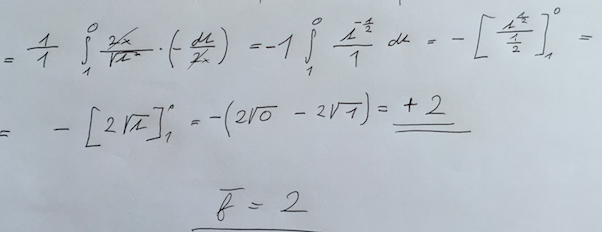 = 1/1 ∫₁⁰ 2x/√u · (− du/2x) = −1 ∫₁⁰ u^(−1/2)/1 du = − [u^(1/2)/(1/2)]₁⁰ =
= − [2√u]₁⁰ = −(2√0 − 2√1) = +2
f̄ = 2